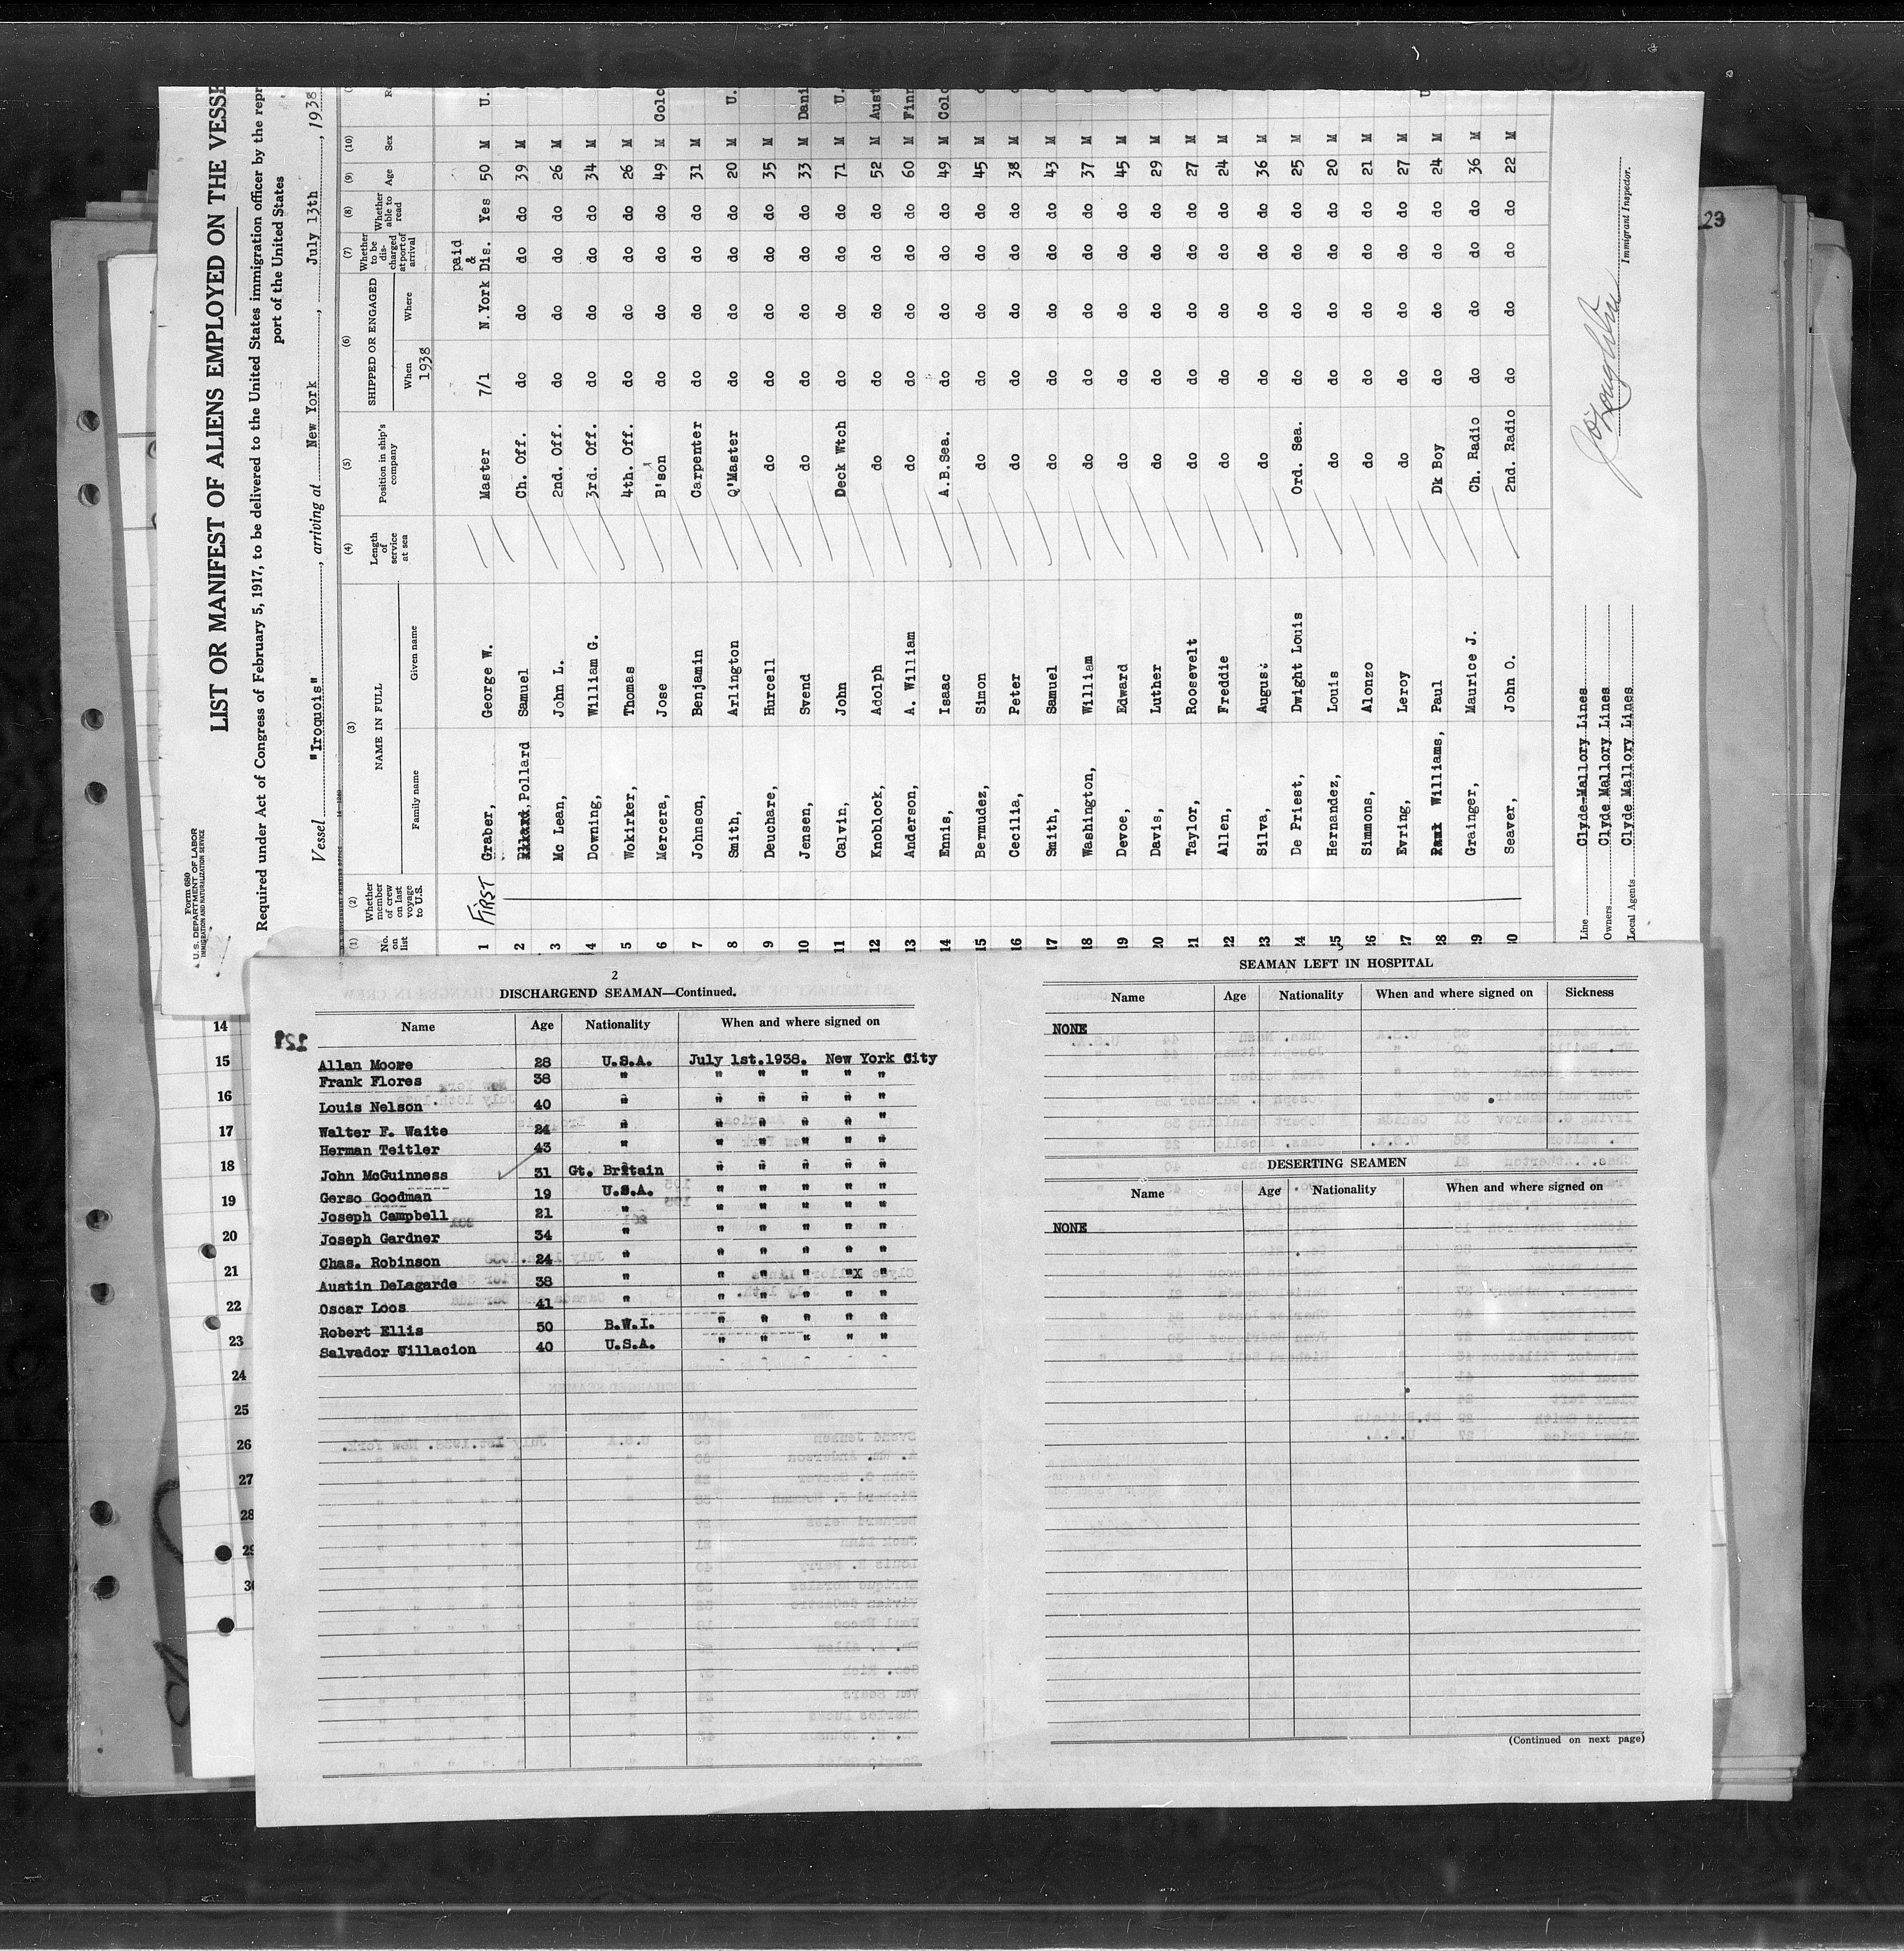 Form 680
U. S. DEPARTMENT OF LABOR
IMMIGRATION AND NATURALIZATION SERVICE
LIST OR MANIFEST OF ALIENS EMPLOYED ON THE VESSE
Required under Act of Congress of February 5, 1917, to be delivered to the United States immigration officer by the repr
port of the United States
Vessel "Iroquois", arriving at New York, July 13th, 1938
(1) (2) (3) (4) (5) (6) (7) (8) (9) (10)
No. on list
Whether member of crew on last voyage to U.S.
NAME IN FULL
Family name Given name
Length of service at sea
Position in ship's company
SHIPPED OR ENGAGED
When Where
1938
Whether to be discharged at port of arrival
Whether able to read
Age
Sex
1 FIRST Graber, George W. Master 7/1 N.York paid & Dis. Yes 50 M U.
2 Pollard Samuel Ch. Off. do do do do 39 M
3 Mc Lean, John L. 2nd. Off. do do do do 26 M
4 Downing, William G. 3rd. Off. do do do do 34 M
5 Wokirker, Thomas 4th. Off. do do do do 26 M
6 Mercera, Jose B'son do do do do 49 M Colo
7 Johnson, Benjamin Carpenter do do do do 31 M
8 Smith, Arlington Q'Master do do do do 20 M U.
9 Deuchare, Hurcell do do do do do 35 M
10 Jensen, Svend do do do do do 33 M Dani
11 Calvin, John Deck Wtch do do do do 71 M U.
12 Knoblock, Adolph do do do do do 52 M Aust
13 Anderson, A. William do do do do do 60 M Finn
14 Ennis, Isaac A.B.Sea. do do do do 49 M Colo
15 Bermudez, Simon do do do do do 45 M
16 Cecilia, Peter do do do do do 38 M
17 Smith, Samuel do do do do do 43 M
18 Washington, William do do do do do 37 M
19 Devoe, Edward do do do do do 45 M
20 Davis, Luther do do do do do 29 M
21 Taylor, Roosevelt do do do do do 27 M
22 Allen, Freddie do do do do do 24 M
23 Silva, August do do do do do 36 M
24 De Priest, Dwight Louis Ord. Sea. do do do do 25 M
25 Hernandez, Louis do do do do do 20 M
26 Simmons, Alonzo do do do do do 21 M
27 Evring, Leroy do do do do do 27 M
28 Williams, Paul Dk Boy do do do do 24 M U
29 Grainger, Maurice J. Ch. Radio do do do do 36 M
30 Seaver, John O. 2nd. Radio do do do do 22 M
Line Clyde-Mallory Lines
Owners Clyde Mallory Lines
Local Agents Clyde Mallory Lines
Immigrant Inspector.
23
2
DISCHARGEND SEAMAN—Continued.
Name Age Nationality When and where signed on
Allan Moore 28 U.S.A. July 1st.1938. New York City
Frank Flores 38 " " " " " "
Louis Nelson 40 " " " " " "
Walter F. Waite 24 " " " " " "
Herman Teitler 43 " " " " " "
John McGuinness 31 Gt. Britain " " " " "
Gerso Goodman 19 U.S.A. " " " " "
Joseph Campbell 21 " " " " " "
Joseph Gardner 34 " " " " " "
Chas. Robinson 24 " " " " " "
Austin DeLagarde 38 " " " " "X "
Oscar Loos 41 " " " " " "
Robert Ellis 50 B.W.I. " " " " "
Salvador Uillacion 40 U.S.A. " " " " "
14
15
16
17
18
19
20
21
22
23
24
25
26
27
28
29
30
SEAMAN LEFT IN HOSPITAL
Name Age Nationality When and where signed on Sickness
NONE
DESERTING SEAMEN
Name Age Nationality When and where signed on
NONE
(Continued on next page)